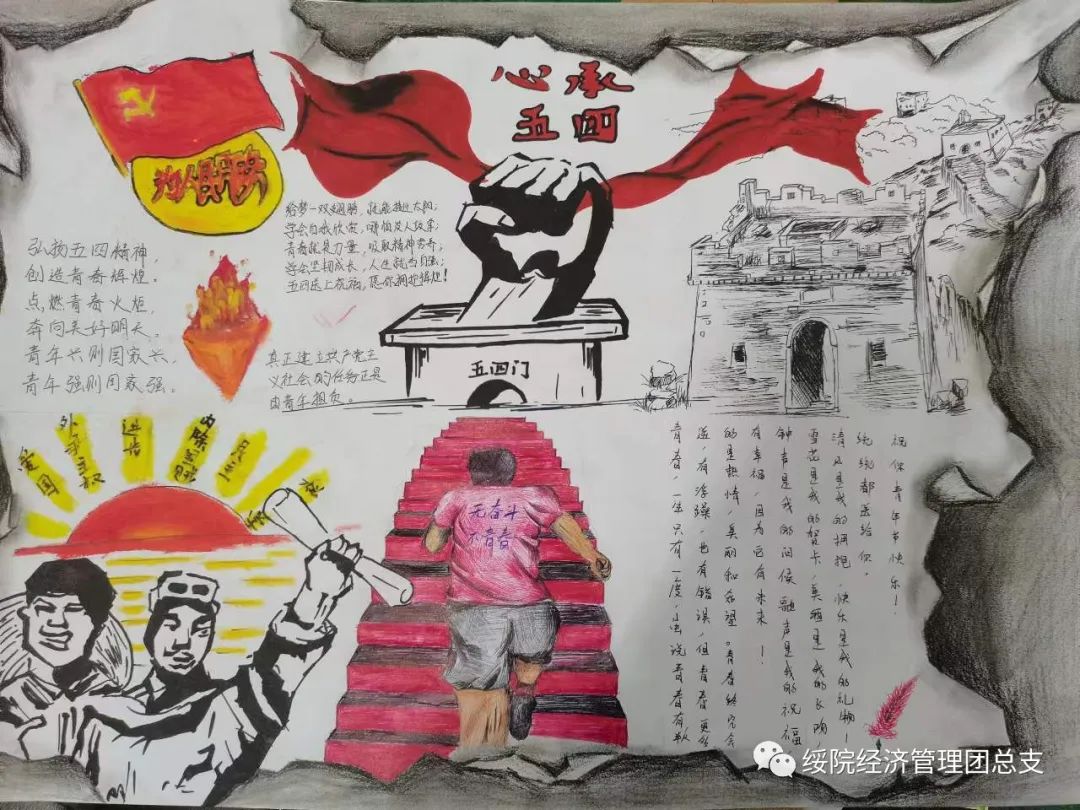 心承
五四
为人民服务
给梦一双翅膀，就能接近太阳；
学会自我欣赏，哪怕没人鼓掌；
青春就是力量，吸取精神营养；
学会坚韧成长，人生就当自强；
五四送上祝福，愿你拥抱辉煌！
弘扬五四精神，
创造青春辉煌。
点燃青春火炬，
奔向美好明天。
青年兴则国家兴，
青年强则国家强。
真正建立共产党主
义社会的任务正是
由青年担负。
五四门
爱国
外争主权
进步
内除国贼
无奋斗
不青春
青春，一生只有一度，虽说青春有
遥，有浮躁，也有错误，但青春更多
的是热情，美丽和希望。青春终究会
有幸福，因为它有未来！
钟声是我的问候歌声是我的祝福
雪花是我的贺卡，美酒是我的长吻
清风是我的拥抱，快乐是我的礼物！
统统都送给你。
祝你青年节快乐！
绥院经济管理团总支